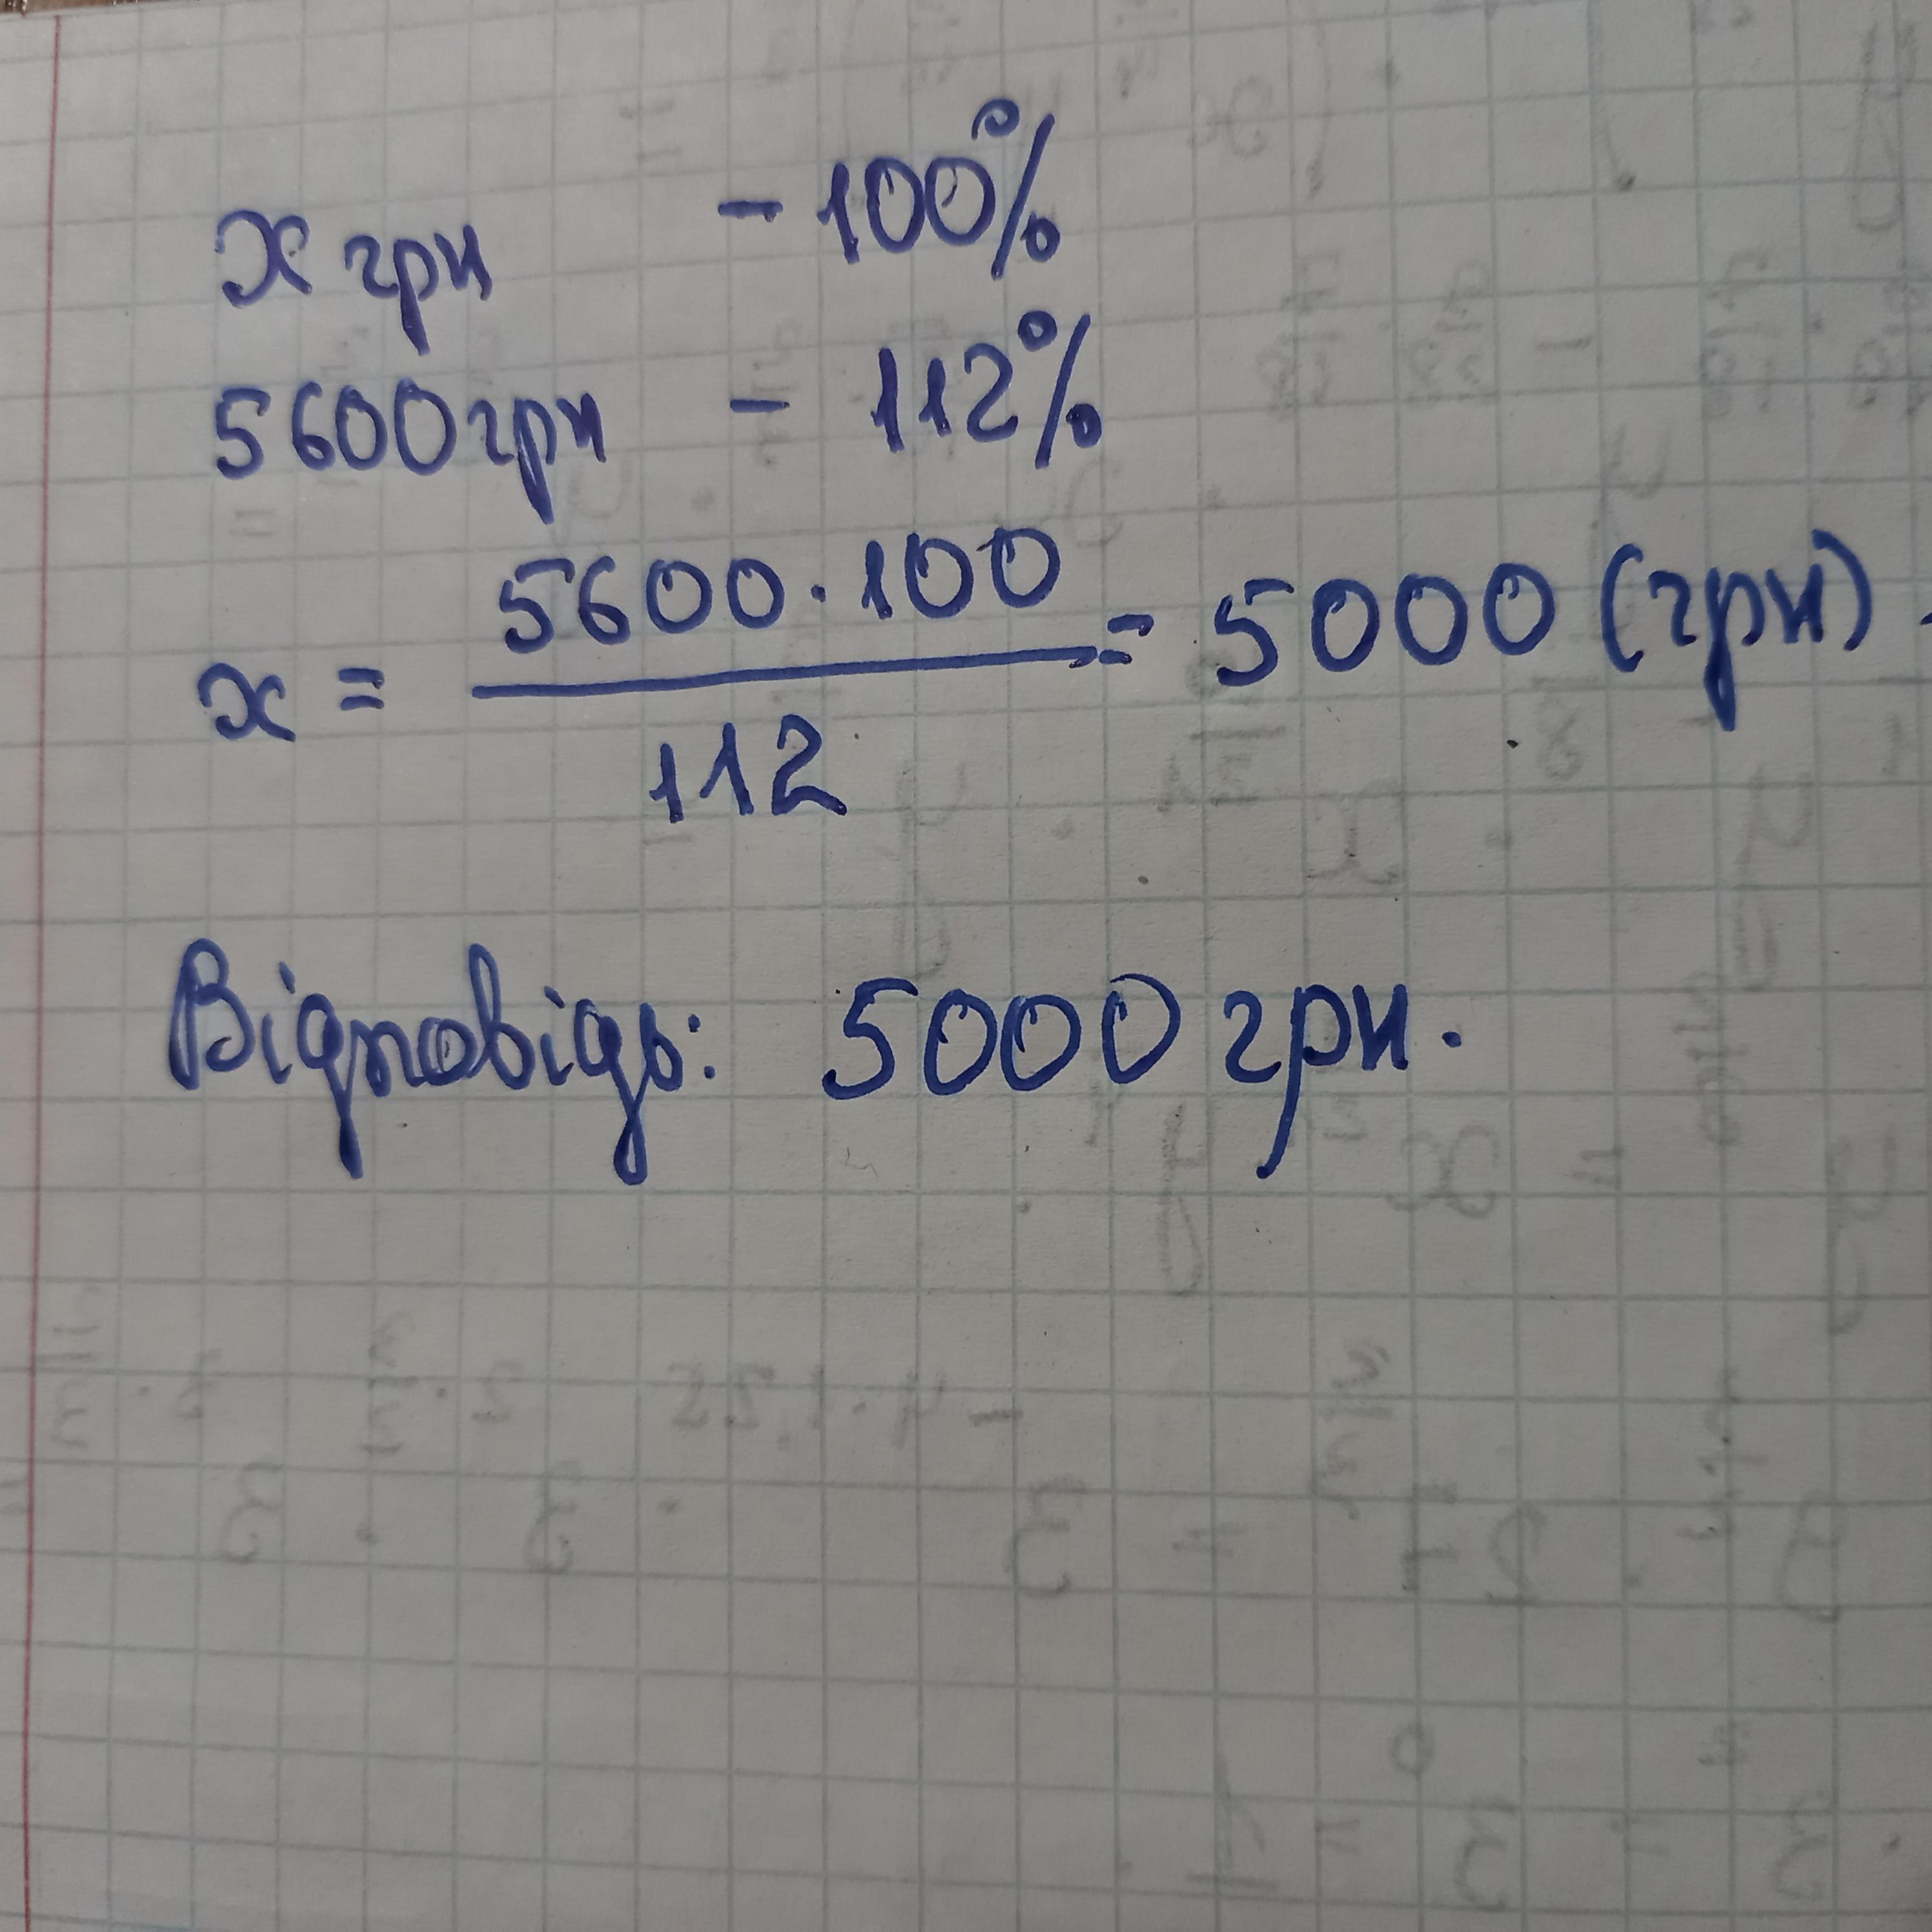 x грн - 100%
5600 грн - 112%
x = 5600 · 100 / 112 = 5000 (грн).
Відповідь: 5000 грн.